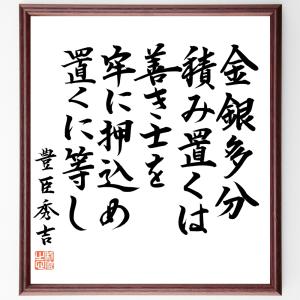 金銀多分
積み置くは
善き士を
牢に押込め
置くに等し
豊臣秀吉